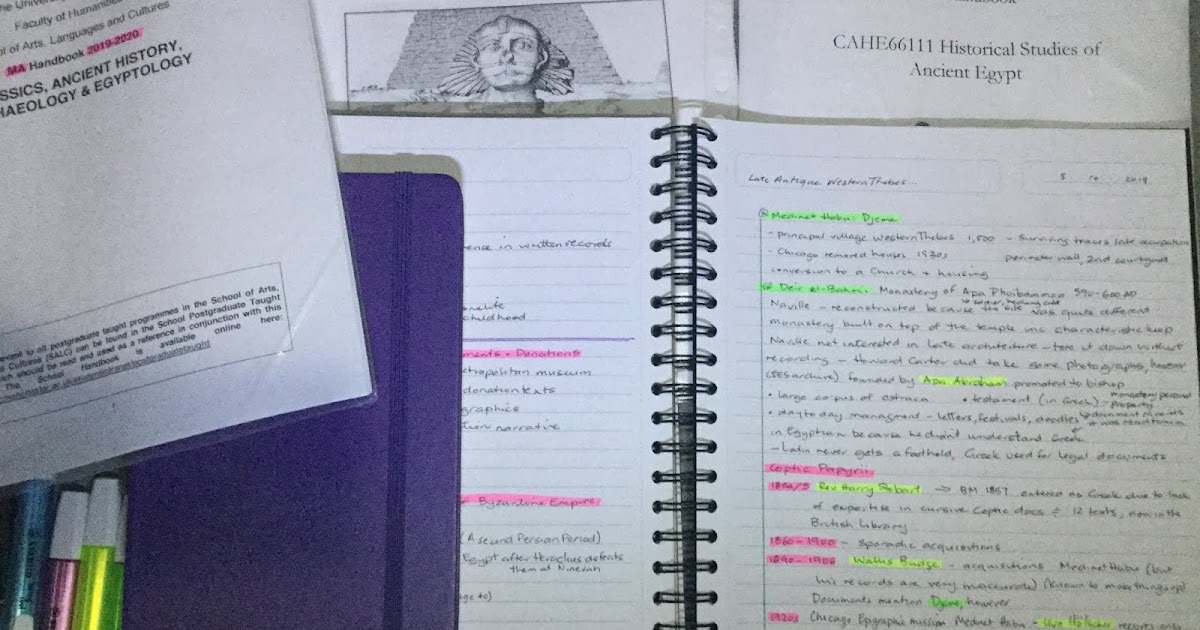 he University
Faculty of Humanities
ol of Arts, Languages and Cultures
MA Handbook 2019-2020
SSICS, ANCIENT HISTORY,
HAEOLOGY & EGYPTOLOGY
evant to all postgraduate taught programmes in the School of Arts,
Cultures (SALC) can be found in the School Postgraduate Taught
ch should be read and used as a reference in conjunction with this
The School Handbook is available online here:
CAHE66111 Historical Studies of
Ancient Egypt
ence in written records
childhood
ments + Donations
etropolitan museum
donation texts
graphics
narrative
Byzantine Empire
(A second Persian Period)
Egypt after Heraclius defeats
them at Nineveh
ge to)
Late Antique Western Thebes
5 10 2019
Medinet Habu: Djeme
- principal village Western Thebes 1,500 - Surviving traces late occupation
- Chicago removed houses 1930s perimeter wall, 2nd courtyard
conversion to a Church + housing
Deir el-Bahri: Monastery of Apa Phoibammon 590-600 AD
Naville - reconstructed because the site was quite different
monastery built on top of the temple inc characteristic keep
Naville not interested in late architecture - tore it down without
recording - Howard Carter did take some photographs, however
(EES archive) founded by Apa Abraham promoted to bishop
• large corpus of ostraca • testament (in Greek) - monastery personal
property
• day to day managment - letters, festivals, doodles
in Egyptian because he didn't understand Greek
- Latin never gets a foothold, Greek used for legal documents
Coptic Papyri
1854/5 Rev Harry Stobart → BM 1857 entered as Greek due to lack
of expertise in cursive Coptic docs 12 texts, now in the
British Library
1860-1900 - Sporadic acquisitions
1890-1908 Wallis Budge - acquisitions Medinet Habu (but
his records are very inaccurate) (known to make things up)
Documents mention Djeme, however
1920s Chicago Epigraphic mission Medinet Habu - Uvo Hölscher reports only